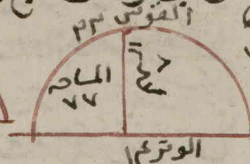 القوس ٢٢
المساحه
٧٧
الوتر ١٤